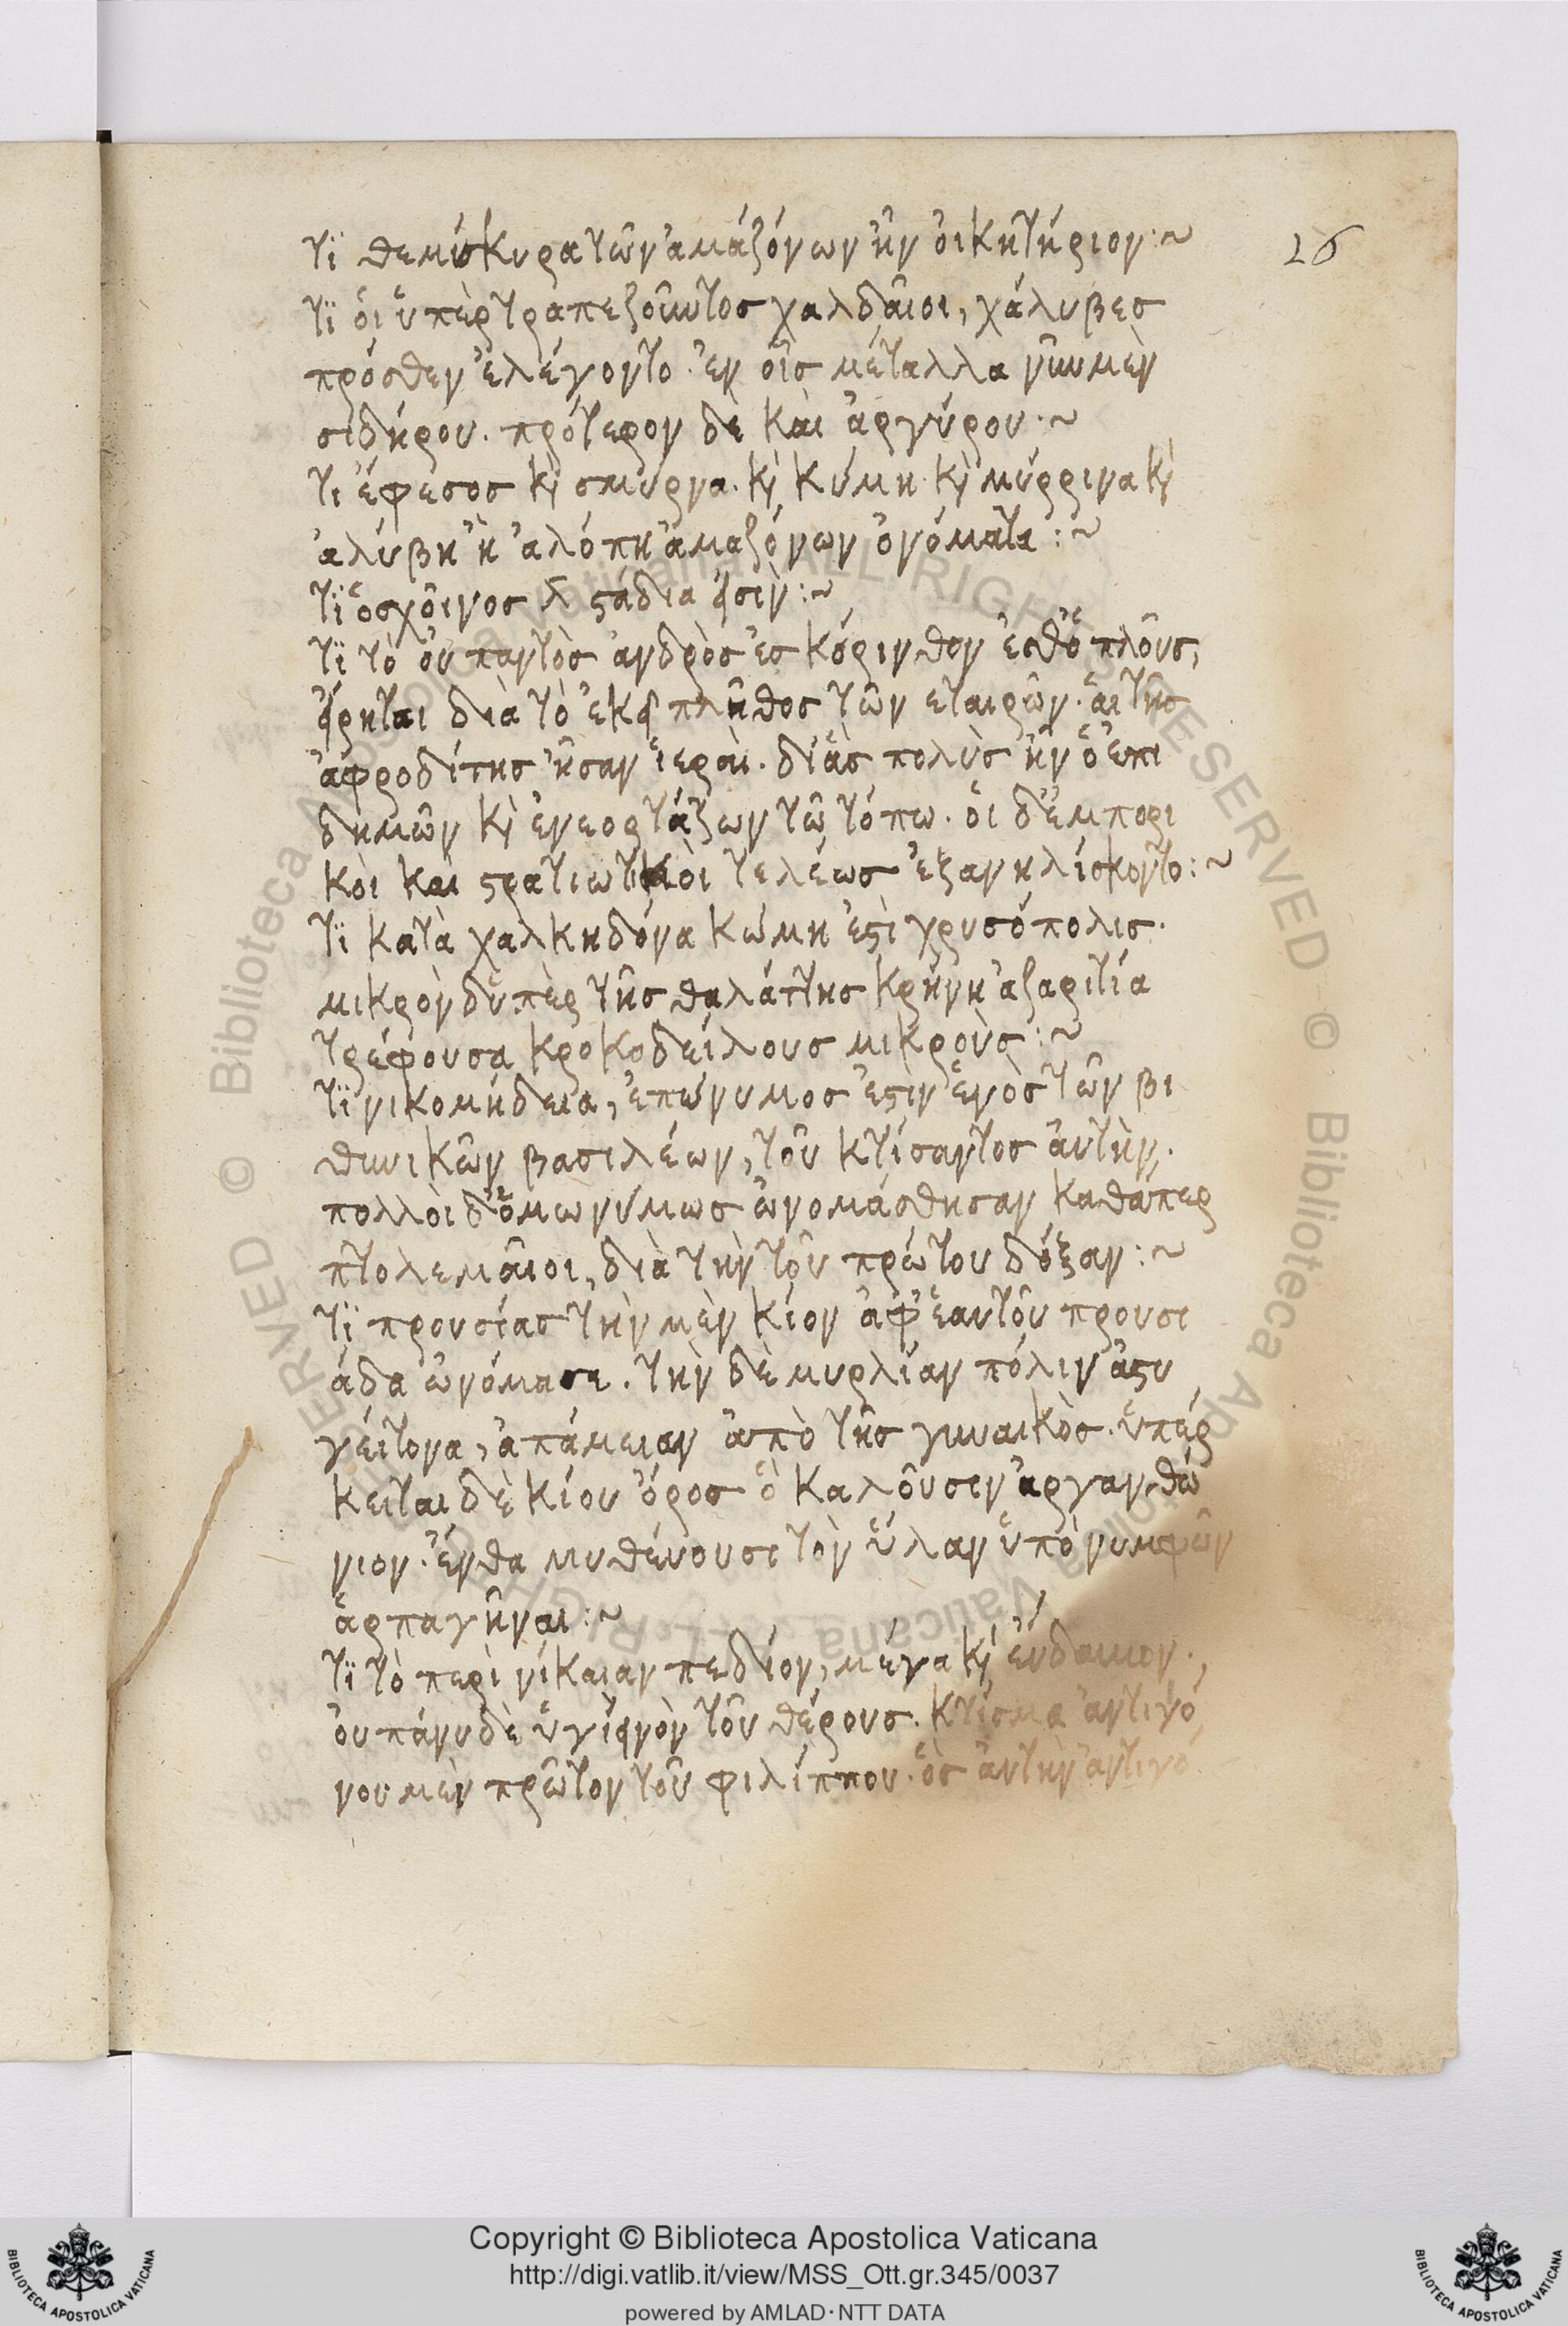 ὅτϊ θεμύσκυρα τῶν ἀμάζόνων ἦν ὀικητήριον:~
26
ὅτϊ ὁι ὑπὲρ τραπεζοῦντος χαλδᾶιοι, χάλυβες
πρόσθεν ἐλέγοντο. ἐν ὅις μέταλλα νῦν μὲν
σιδήρου. πρότερον δὲ καὶ ἀργύρου.~
ὅτι ἔφεσος κὶ σμύρνα. κὶ κύμη. κὶ μύρρινα κὶ
ἀλύβη ἢ ἀλόπη ἀμαζόνων ὀνόματα:~
ὅτϊ ὁ σχοῖνος λ ϛάδια φσὶν:~
ὅτϊ τὸ ὀυ παντὸς ἀνδρὸς ἐς κόρινθον ἐσθ' ὁ πλοῦς,
ἔιρηται διὰ τὸ ἐκεῖ πλῆθος τῶν εταιρῶν. ἁι τῆς
ἀφροδίτης ἦσαν ἱεραὶ. δι' ἃς πολὺς ἦν ὁ ἐπι
δημῶν κὶ ἐνεορτάζων τῶ τόπω. ὁι δ' ἐμπορι
κὸι καὶ ϛρατιωτικὸι τελέως ἐξανηλίσκοντο:~
ὅτϊ κατὰ χαλκηδόνα κώμη ἐϛὶ χρυσόπολις.
μικρὸν δ' ὑπὲρ τῆς θαλάττης κρήνη ἀζαριτία
τρέφουσα κροκοδείλους μικροὺς:~
ὅτϊ νικομήδεια, ἐπώνυμος ἐϛὶν ἑνὸς τῶν βι
θυνικῶν βασιλέων, τοῦ κτίσαντος ἀυτὴν.
πολλὸι δ' ὁμωνύμως ὠνομάσθησαν καθάπερ
πτολεμᾶιοι, διὰ τὴν τοῦ πρώτου δόξαν:~
ὅτϊ προυσίας τὴν μὲν κίον ἀφ' ἑαυτοῦ προυσι
άδα ὠνόμασε. τὴν δὲ μυρλίαν πόλιν ἀϛυ
γείτονα, ἀπάμειαν ἀπὸ τῆς γυναικὸς. ὑπέρ
κειται δὲ κίου ὄρος ὃ καλοῦσιν ἀργανθώ
νιον. ἔνθα μυθέυουσι τὸν ὕλαν ὑπὸ νυμφῶν
ἁρπαγῆναι:~
ὅτϊ τὸ περὶ νίκαιαν πεδίον, μέγα κὶ ἔυδαιμον.
ὀυ πάνυ δὲ ὑγιεινὸν τοῦ θέρους. κτίσμα ἀντιγό
νου μὲν πρῶτον τοῦ φιλίππου. ὃς ἀυτὴν ἀντιγό
Copyright © Biblioteca Apostolica Vaticana
http://digi.vatlib.it/view/MSS_Ott.gr.345/0037
powered by AMLAD·NTT DATA